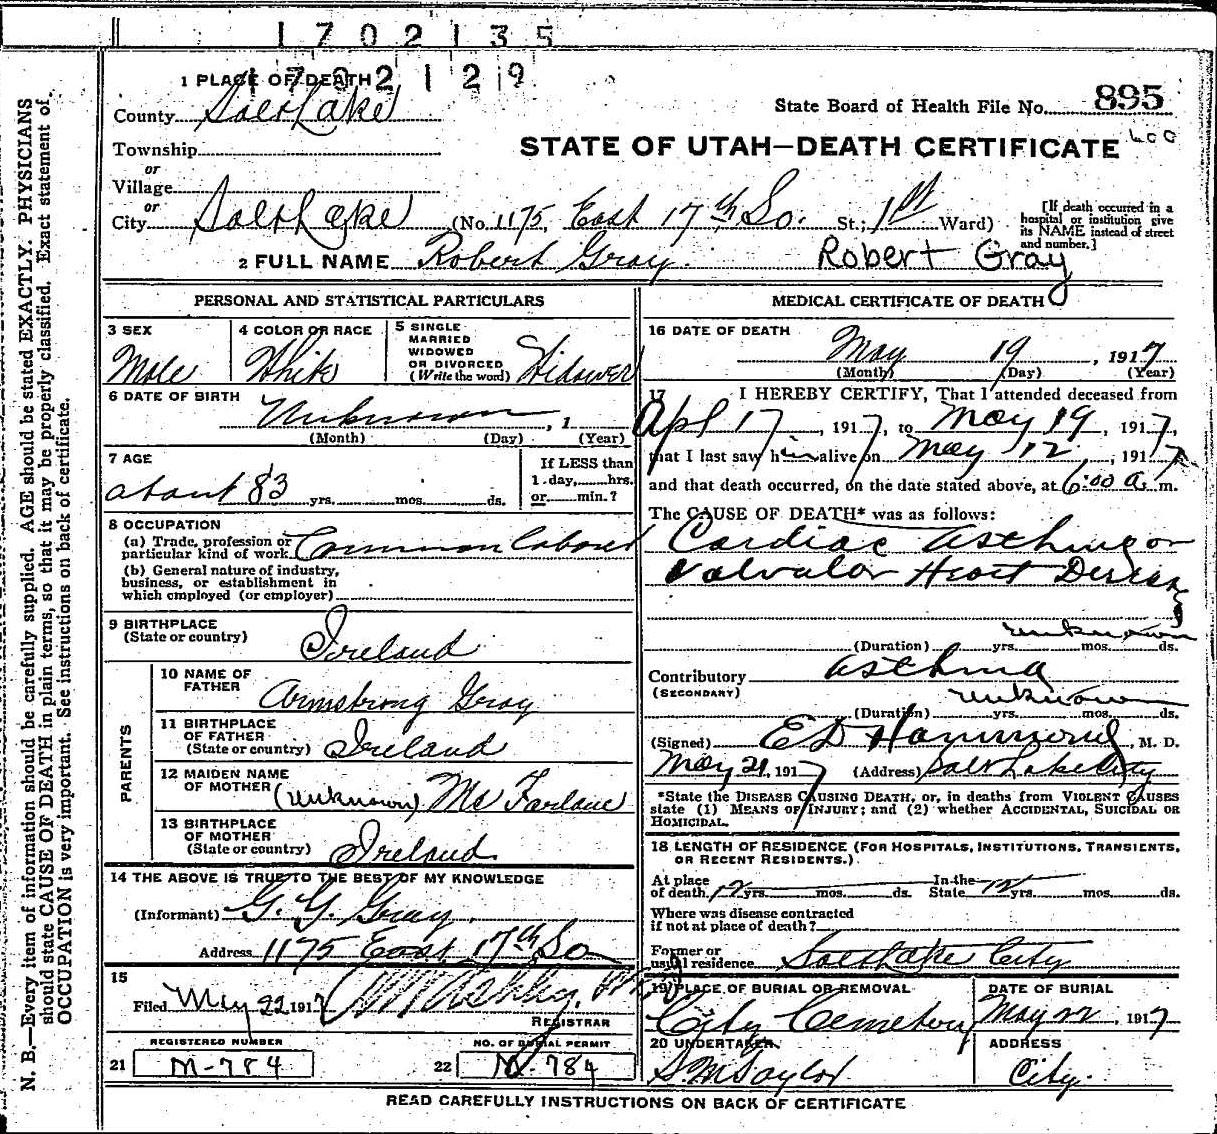 1702135
1702129
1 PLACE OF DEATH
County Salt Lake
State Board of Health File No. 895
Township
STATE OF UTAH—DEATH CERTIFICATE 600
or
Village
or
City Salt Lake (No. 1175, East 17th So. St.; 1st Ward)
[If death occurred in a
hospital or institution give
its NAME instead of street
and number.]
2 FULL NAME Robert Gray. Robert Gray
PERSONAL AND STATISTICAL PARTICULARS
3 SEX
Male
4 COLOR OR RACE
White
5 SINGLE
MARRIED
WIDOWED
OR DIVORCED
(Write the word) Widower
6 DATE OF BIRTH
Unknown, 1
(Month) (Day) (Year)
7 AGE
about 83 yrs. mos. ds.
If LESS than
1 day, hrs.
or min.?
8 OCCUPATION
(a) Trade, profession or
particular kind of work Common laborer
(b) General nature of industry,
business, or establishment in
which employed (or employer)
9 BIRTHPLACE
(State or country)
Ireland
PARENTS
10 NAME OF
FATHER
Armstrong Gray
11 BIRTHPLACE
OF FATHER
(State or country) Ireland
12 MAIDEN NAME
OF MOTHER (Unknown) McFarlane
13 BIRTHPLACE
OF MOTHER
(State or country) Ireland
14 THE ABOVE IS TRUE TO THE BEST OF MY KNOWLEDGE
(Informant) G. G. Gray.
Address 1175 East 17th So
15
Filed May 22 1917
REGISTRAR
REGISTERED NUMBER
21 M-784
NO. OF BURIAL PERMIT
22 M-784
MEDICAL CERTIFICATE OF DEATH
16 DATE OF DEATH
May 19, 1917
(Month) (Day) (Year)
17 I HEREBY CERTIFY, That I attended deceased from
Apl 17, 1917, to May 19, 1917,
that I last saw him alive on May 12, 1917,
and that death occurred, on the date stated above, at 6:00 a. m.
The CAUSE OF DEATH* was as follows:
Cardiac Asthma or
Valvular Heart Disease
unknown
(Duration) yrs. mos. ds.
Contributory asthma
(SECONDARY)
unknown
(Duration) yrs. mos. ds.
(Signed) E D Hammond, M. D.
May 21, 1917 (Address) Salt Lake City
*State the DISEASE CAUSING DEATH, or, in deaths from VIOLENT CAUSES
state (1) MEANS OF INJURY; and (2) whether ACCIDENTAL, SUICIDAL OR
HOMICIDAL.
18 LENGTH OF RESIDENCE (FOR HOSPITALS, INSTITUTIONS, TRANSIENTS,
OR RECENT RESIDENTS.)
At place
of death 12 yrs. mos. ds.
In the
State 12 yrs. mos. ds.
Where was disease contracted
if not at place of death?
Former or
usual residence Salt Lake City
19 PLACE OF BURIAL OR REMOVAL
City Cemetery
DATE OF BURIAL
May 22, 1917
20 UNDERTAKER
S. M Taylor
ADDRESS
City.
READ CAREFULLY INSTRUCTIONS ON BACK OF CERTIFICATE
N. B.—Every item of information should be carefully supplied. AGE should be stated EXACTLY. PHYSICIANS
should state CAUSE OF DEATH in plain terms, so that it may be properly classified. Exact statement of
OCCUPATION is very important. See instructions on back of certificate.